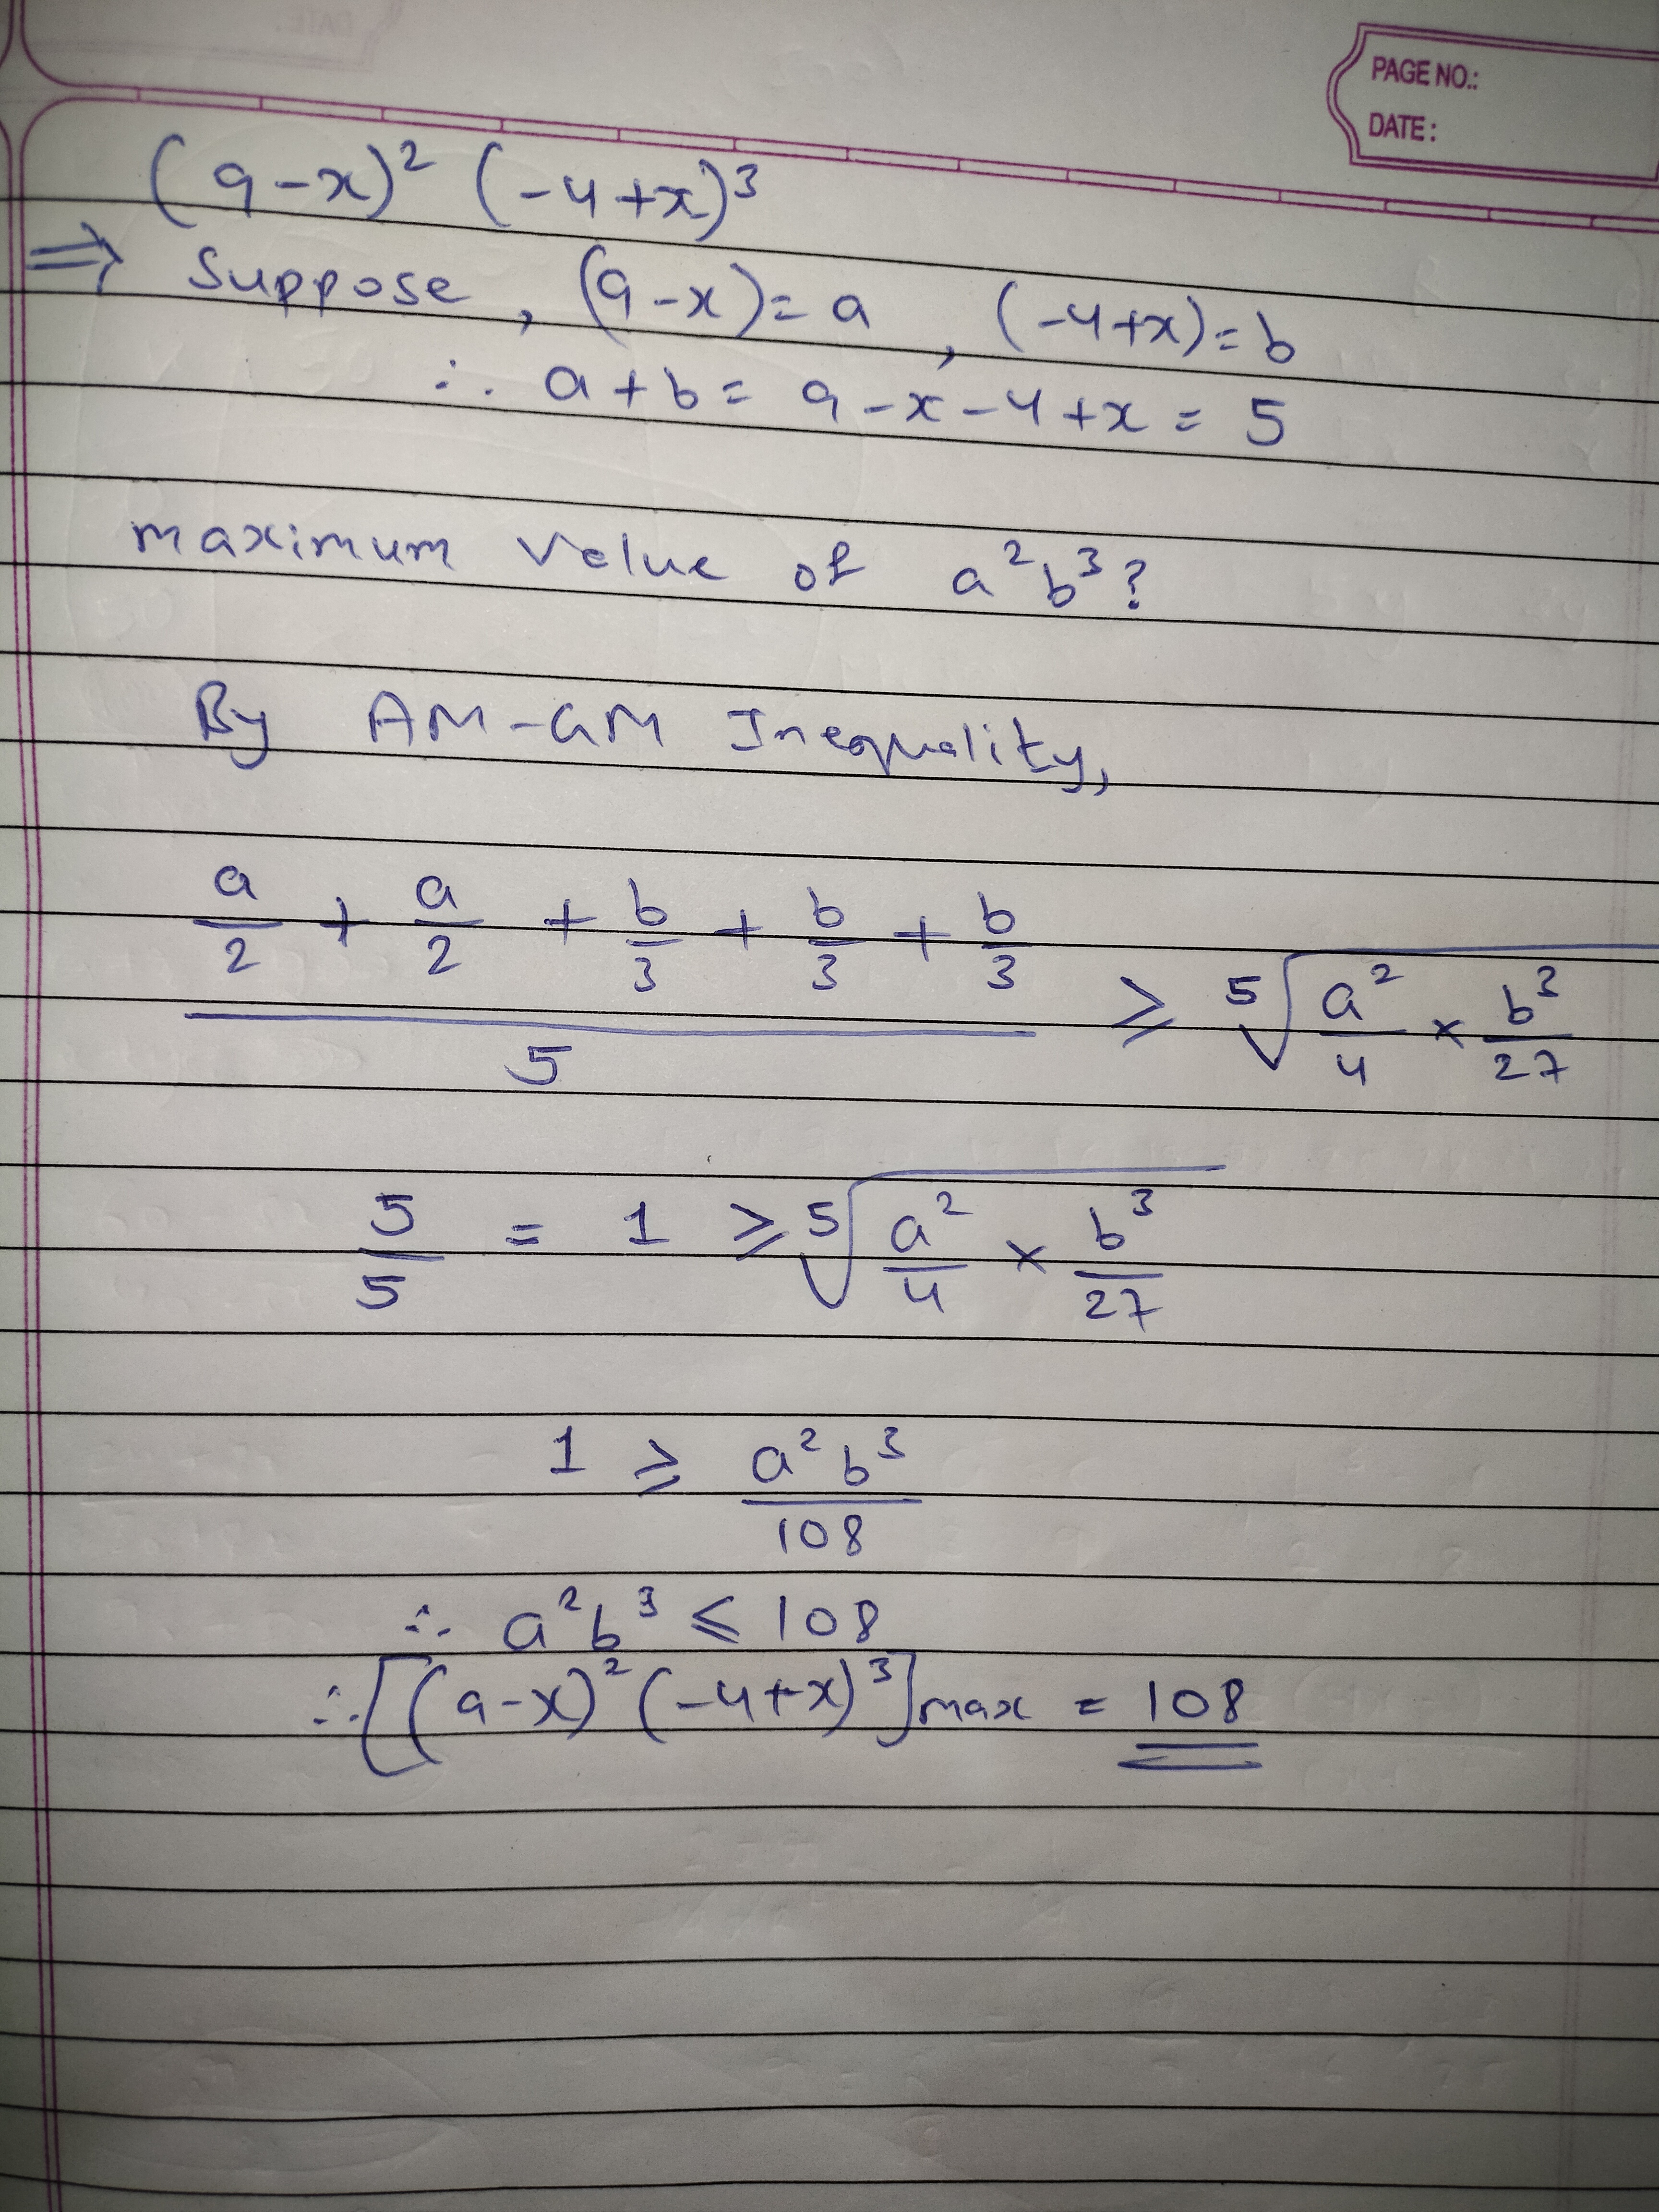 PAGE NO.:
DATE:
(9-x)² (-4+x)³
⇒ Suppose, (9-x)=a, (-4+x)=b
∴ a+b= 9-x-4+x = 5
maximum value of a²b³?
By AM-GM Inequality,
(a/2 + a/2 + b/3 + b/3 + b/3)/5 ≥ ⁵√(a²/4 × b³/27)
5/5 = 1 ≥ ⁵√(a²/4 × b³/27)
1 ≥ a²b³/108
∴ a²b³ ≤ 108
∴ [(9-x)²(-4+x)³]max = 108